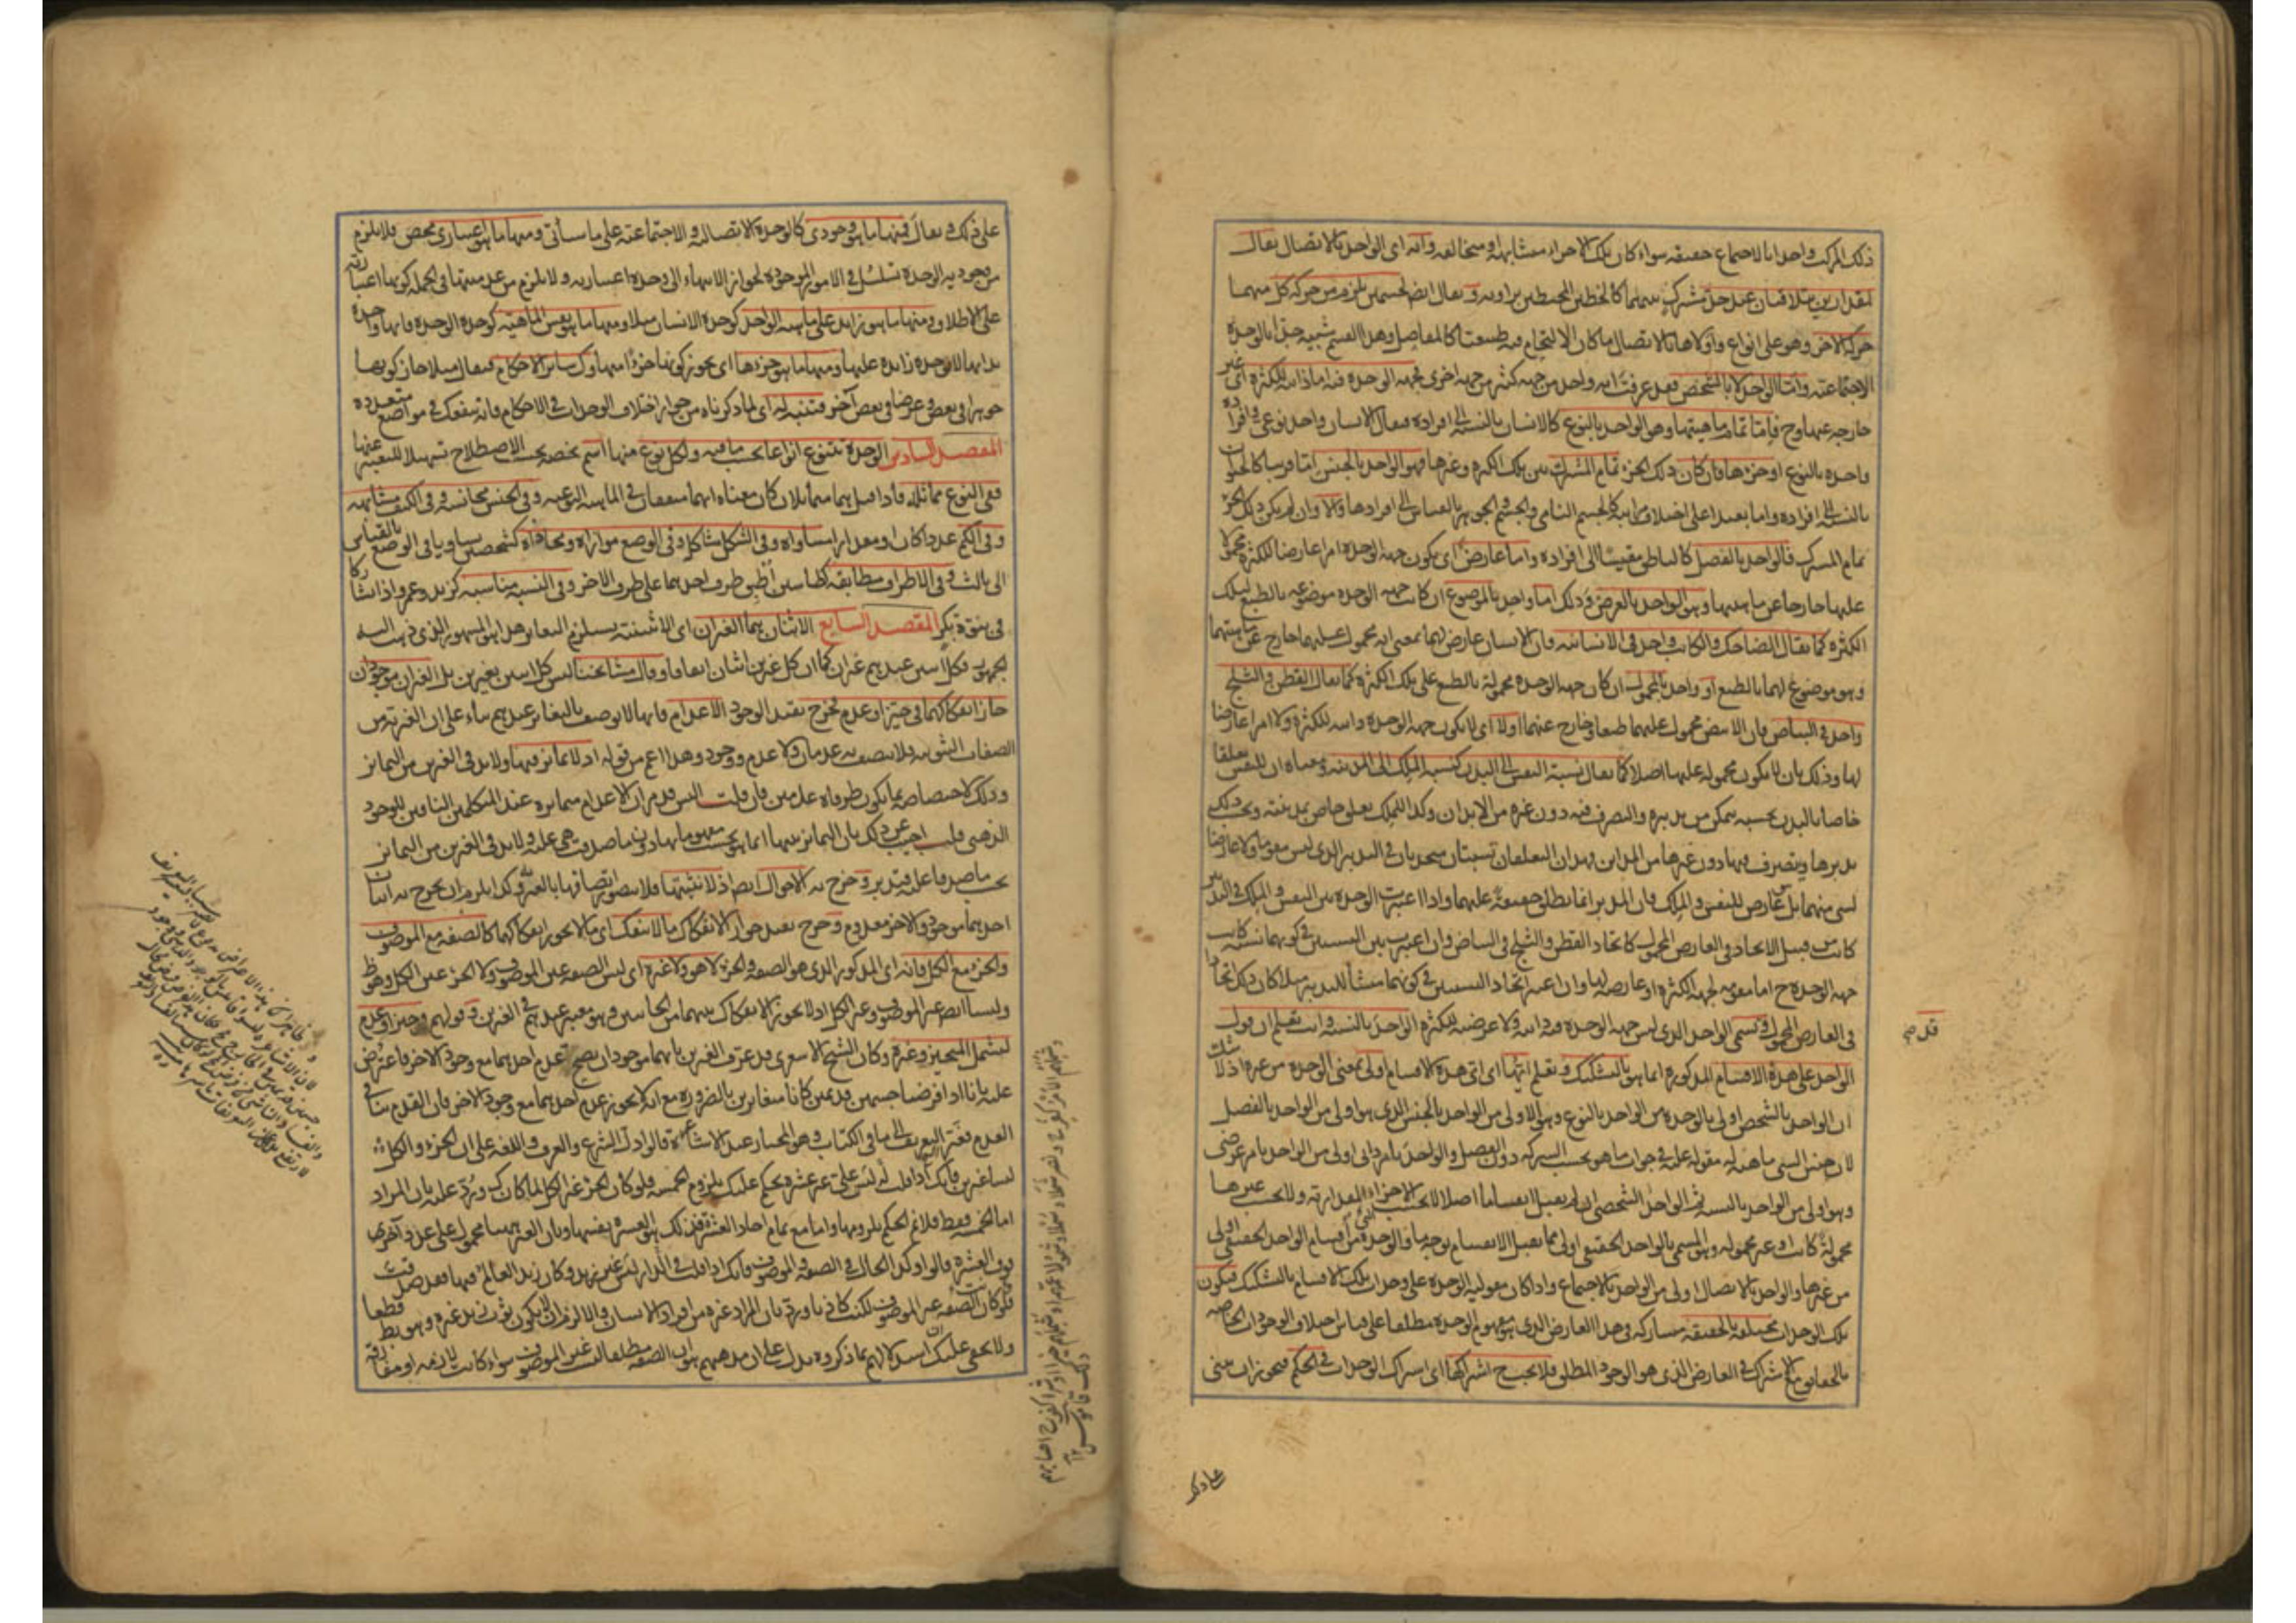 ذلك المركب واحدا بالاجتماع حقيقة سواء كان تلك الاجزاء متشابهة او متخالفة وانه اى الواحد بالاتصال يقال
لمقدارين يتلاقيان عند حد مشترك بينهما كالخطين المحيطين بزاوية ويقال ايضا لجسمين يلزم من حركة كل منهما
حركة الاخر وهو على انواع واولاها بالاتصال ما كان الالتحام فيه طبيعيا كالمفاصل وهذا القسم شبيه جدا بالوحدة
الاجتماعية واما الواحد لا بالشخص فقد عرفت انه واحد من جهة كثير من جهة اخرى فجهة الوحدة فيه اما ذاتية للكثرة اى غير
خارجة عنها وح فاما تمام ماهيتها وهو الواحد بالنوع كالانسان بالنسبة الى افراده فيقال الانسان واحد نوعى وافراده
واحدة بالنوع او جزءها فان كان ذلك الجزء تمام المشترك بين تلك الكثرة وغيرها فهو الواحد بالجنس اما قريبا كالحيوان
بالنسبة الى افراده واما بعيدا على اختلاف مراتبه كالجسم النامى والجسم والجوهر بالقياس الى افرادها والا وان لم يكن ذلك الجزء
تمام المشترك فالواحد بالفصل كالناطق مقيسا الى افراده واما عارض اى يكون جهة الوحدة امرا عارضا للكثرة محمولا
عليها خارجا عن ماهيتها وهو الواحد بالعرض وذلك اما واحد بالموضوع ان كانت جهة الوحدة موضوعة بالطبع لتلك
الكثرة كما يقال الضاحك والكاتب واحد فى الانسانية فان الانسان عارض لهما بمعنى انه محمول عليهما خارج عن ماهيتهما
وهو موضوع لهما بالطبع او واحد بالمحمول ان كان جهة الوحدة محمولة بالطبع على تلك الكثرة كما يقال القطن والثلج
واحد فى البياض فان الابيض محمول عليهما طبعا وخارج عنهما اولا اى لا يكون جهة الوحدة ذاتية للكثرة ولا امرا عارضا
لها وذلك بان لا يكون محمولة عليها اصلا كما يقال نسبة النفس الى البدن كنسبة الملك الى المدينة ومعناه ان للنفس تعلقا
خاصا بالبدن بحسبه يتمكن من تدبيره والتصرف فيه دون غيره من الابدان وكذا للملك تعلق خاص بمدينته وبحسب ذلك
يدبرها ويتصرف فيها دون غيرها من المداين فهذان التعلقان نسبتان متحدتان فى التدبير الذى ليس مقوما ولا عارضا
لشى منهما بل عارض للنفس والملك فان المدبر انما يطلق حقيقة عليهما واذا اعتبرت الوحدة بين النفس والملك فى التدبير
كانت من قبيل الاتحاد فى العارض المحمول كاتحاد القطن والثلج فى البياض وان اعتبرت بين النسبتين فى كونهما نسبة كانت
جهة الوحدة ح اما مقومة لجهة الكثرة او عارضة لها وان اعتبر اتحاد النسبتين فى كونهما منشأ للتدبير مثلا كان ذلك اتحادا
فى العارض المحمول وقد يسمى الواحد الذى ليس جهة الوحدة فيه ذاتية ولا عرضية للكثرة الواحد بالنسبة وانت تعلم ان قول
الواحد على هذه الاقسام المذكورة انما هو بالتشكيك وتعلم ايتها اى اى هذه الاقسام اولى بمعنى الوحدة من غيره اذ لا شك
ان الواحد بالشخص اولى بالوحدة من الواحد بالنوع وهو الاولى من الواحد بالجنس الذى هو اولى من الواحد بالفصل
لان جنس الشى ماهية له مقولة عليه فى جواب ما هو بحسب الشركة دون الفصل والواحد بامر ذاتى اولى من الواحد بامر عرضى
وهو اولى من الواحد بالنسبة ثم الواحد الشخصى ان لم يقبل انقساما اصلا لا بحسب الاجزاء المقدارية ولا بحسب غيرها
محمولة كانت او غير محمولة وهو المسمى بالواحد الحقيقى اولى مما يقبل الانقسام بوجه ما والوحدة من اقسام الواحد الحقيقى اولى
من غيرها والواحد بالاتصال اولى من الواحد بالاجتماع واذا كان مقولية الوحدة على وحدات تلك الاقسام بالتشكيك فيكون
تلك الوحدات مختلفة بالحقيقة مشاركة فى هذا العارض الذى هو مفهوم الوحدة مطلقا على قياس خلاف الوجودات الخاصة
بالحقايق مع الاشتراك فى العارض الذى هو الوجود المطلق فلا يجب ح اشتراكها اى اشتراك الوحدات فى الحكم فيجوز ان يبنى
قد صح
على ذلك ويقال فمنها ما هو وجودى كالوحدة الاتصالية والاجتماعية على ما سيأتى ومنها ما هو اعتبارى محض فلا يلزم
من وجودية الوحدة تسلسل فى الامور الموجودة لجواز الانتهاء الى وحدة اعتبارية ولا يلزم من عدميتها فى الجملة كونها اعتبارية
على الاطلاق ومنها ما هو زايد على ماهية الواحد كوحدة الانسان مثلا ومنها ما هو نفس الماهية كوحدة الوحدة فانها واحدة
بذاتها لا بوحدة زايدة عليها ومنها ما هو جزءها اى يجوز كونها جزءا منها وكسائر الاحكام فيقال مثلا جاز كونها
جوهرا فى بعض وعرضا فى بعض آخر فتنبه له اى لما ذكرناه من جواز اختلاف الوحدات فى الاحكام فانه ينفعك فى مواضع متعددة
المقصد السادس الوحدة تتنوع انواعا بحسب ما فيه ولكل نوع منها اسم يخصه بحسب الاصطلاح تسهيلا للتعبير عنها
ففى النوع مماثلة فاذا قيل هما متماثلان كان معناه انهما متفقان فى الماهية النوعية وفى الجنس مجانسة وفى الكيف مشابهة
وفى الكم عددا كان او مقدارا مساواة وفى الشكل مشاكلة وفى الوضع موازاة ومحاذاة كشخصين تساويا فى الوضع بالقياس
الى ثالث وفى الاطراف مطابقة كطاسين اطبق طرف احدهما على طرف الاخر وفى النسبة مناسبة كزيد وعمرو اذا تشاركا
فى بنوة بكر المقصد السابع الاثنان هما الغيران اى الاثنينية يستلزم التغاير هذا هو المشهور الذى ذهب اليه
الجمهور فكل اثنين عندهم غيران كما ان كل غيرين اثنان اتفاقا وقال مشايخنا ليس كل اثنين بغيرين بل الغيران موجودان
جاز انفكاكهما فى حيز او عدم فخرج بقيد الوجود الاعدام فانها لا توصف بالتغاير عندهم بناء على ان الغيرية من
الصفات الثبوتية فلا يتصف به عدمان ولا عدم ووجود وهذا اعم من قوله اذ لا تمايز فيها ولابد فى الغيرين من التمايز
وذلك لاختصاصه بما يكون طرفاه عدميين فان قلت اليس قد مر ان الاعدام متمايزة عند المتكلمين النافين للوجود
الذهنى قلت اجيب عن ذلك بان التمايز بينها انما هو بحسب مفهوماتها دون ما صدقت هى عليه ولابد فى الغيرين من التمايز
بحسب ما صدقا عليه فتدبر وخرج به الاحوال ايضا اذ لا نثبتها فلا يتصور اتصافها بالغيرية وكذا يلزم ان يخرج به اثنان
احدهما موجود والاخر معدوم وخرج بقيد جواز الانفكاك ما لا ينفك اى ما لا يجوز انفكاكهما كالصفة مع الموصوف
والجزء مع الكل فانه اى المذكور الذى هو الصفة والجزء لا هو ولا غيره اى ليس الصفة عين الموصوف ولا الجزء عين الكل وهو ظ
وليسا ايضا غير الموصوف وغير الكل اذ لا يجوز الانفكاك بينهما من الجانبين وهو معتبر عندهم فى الغيرين وقولهم فى حيز او عدم
ليشمل المتحيز وغيره وكان الشيخ الاشعرى قد عرف الغيرين بانهما موجودان يصح عدم احدهما مع وجود الاخر فاعترض
عليه بانا اذا فرضنا جسمين قديمين كانا متغايرين بالضرورة مع انه لا يجوز عدم احدهما مع وجود الاخر فان القدم ينافى
العدم فغير التعريف الى ما فى الكتاب وهو المختار عند الاشاعرة قالوا دل الشرع والعرف واللغة على ان الجزء والكل
ليسا غيرين فانك اذا قلت له ليس على غير عشرة يحكم عليك بلزوم الخمسة فلو كان الجزء غير الكل لما كان كذلك ورد عليه بان المراد
اما الخمسة فقط فلا نم الحكم بلزومها واما مع تمام احاد العشرة فذلك هو العشرة بنفسها وبان الغير ههنا محمول على عدد آخر
فوق العشرة قالوا وكذا الحال فى الصفة والموصوف فانك اذا قلت فى الدار ليس غير زيد وكان زيد العالم فيها فقد صدقت
فلو كان الصفة غير الموصوف لكنت كاذبا ورد بان المراد غيره من افراد الانسان والا لزم ان لا يكون ثوب زيد غيره وهو بط قطعا
ولا يخفى عليك ان استدلالهم بما ذكروه يدل على ان مذهبهم هو ان الصفة مطلقا ليست غير الموصوف سواء كانت لازمة او مفارقة